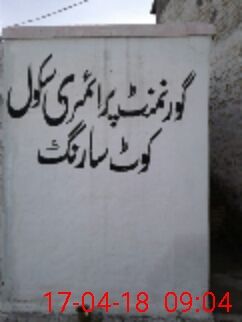 گورنمنٹ پرائمری سکول
کوٹ سارنگ
17-04-18 09:04